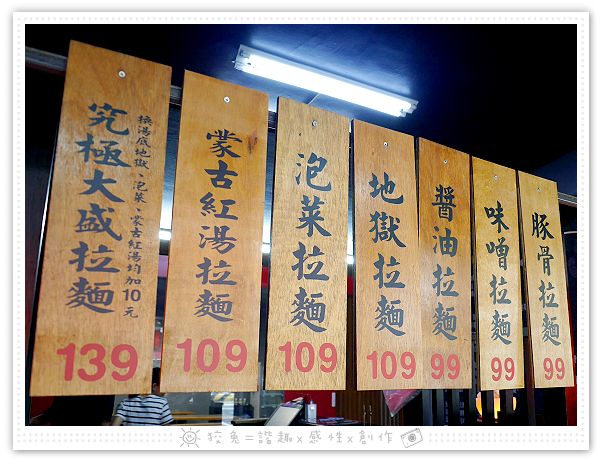 豚骨拉麵
99
味噌拉麵
99
醬油拉麵
99
地獄拉麵
109
泡菜拉麵
109
蒙古紅湯拉麵
109
換湯底地獄、泡菜、蒙古紅湯均加10元
究極大盛拉麵
139
狡兔=諧趣x感性x創作